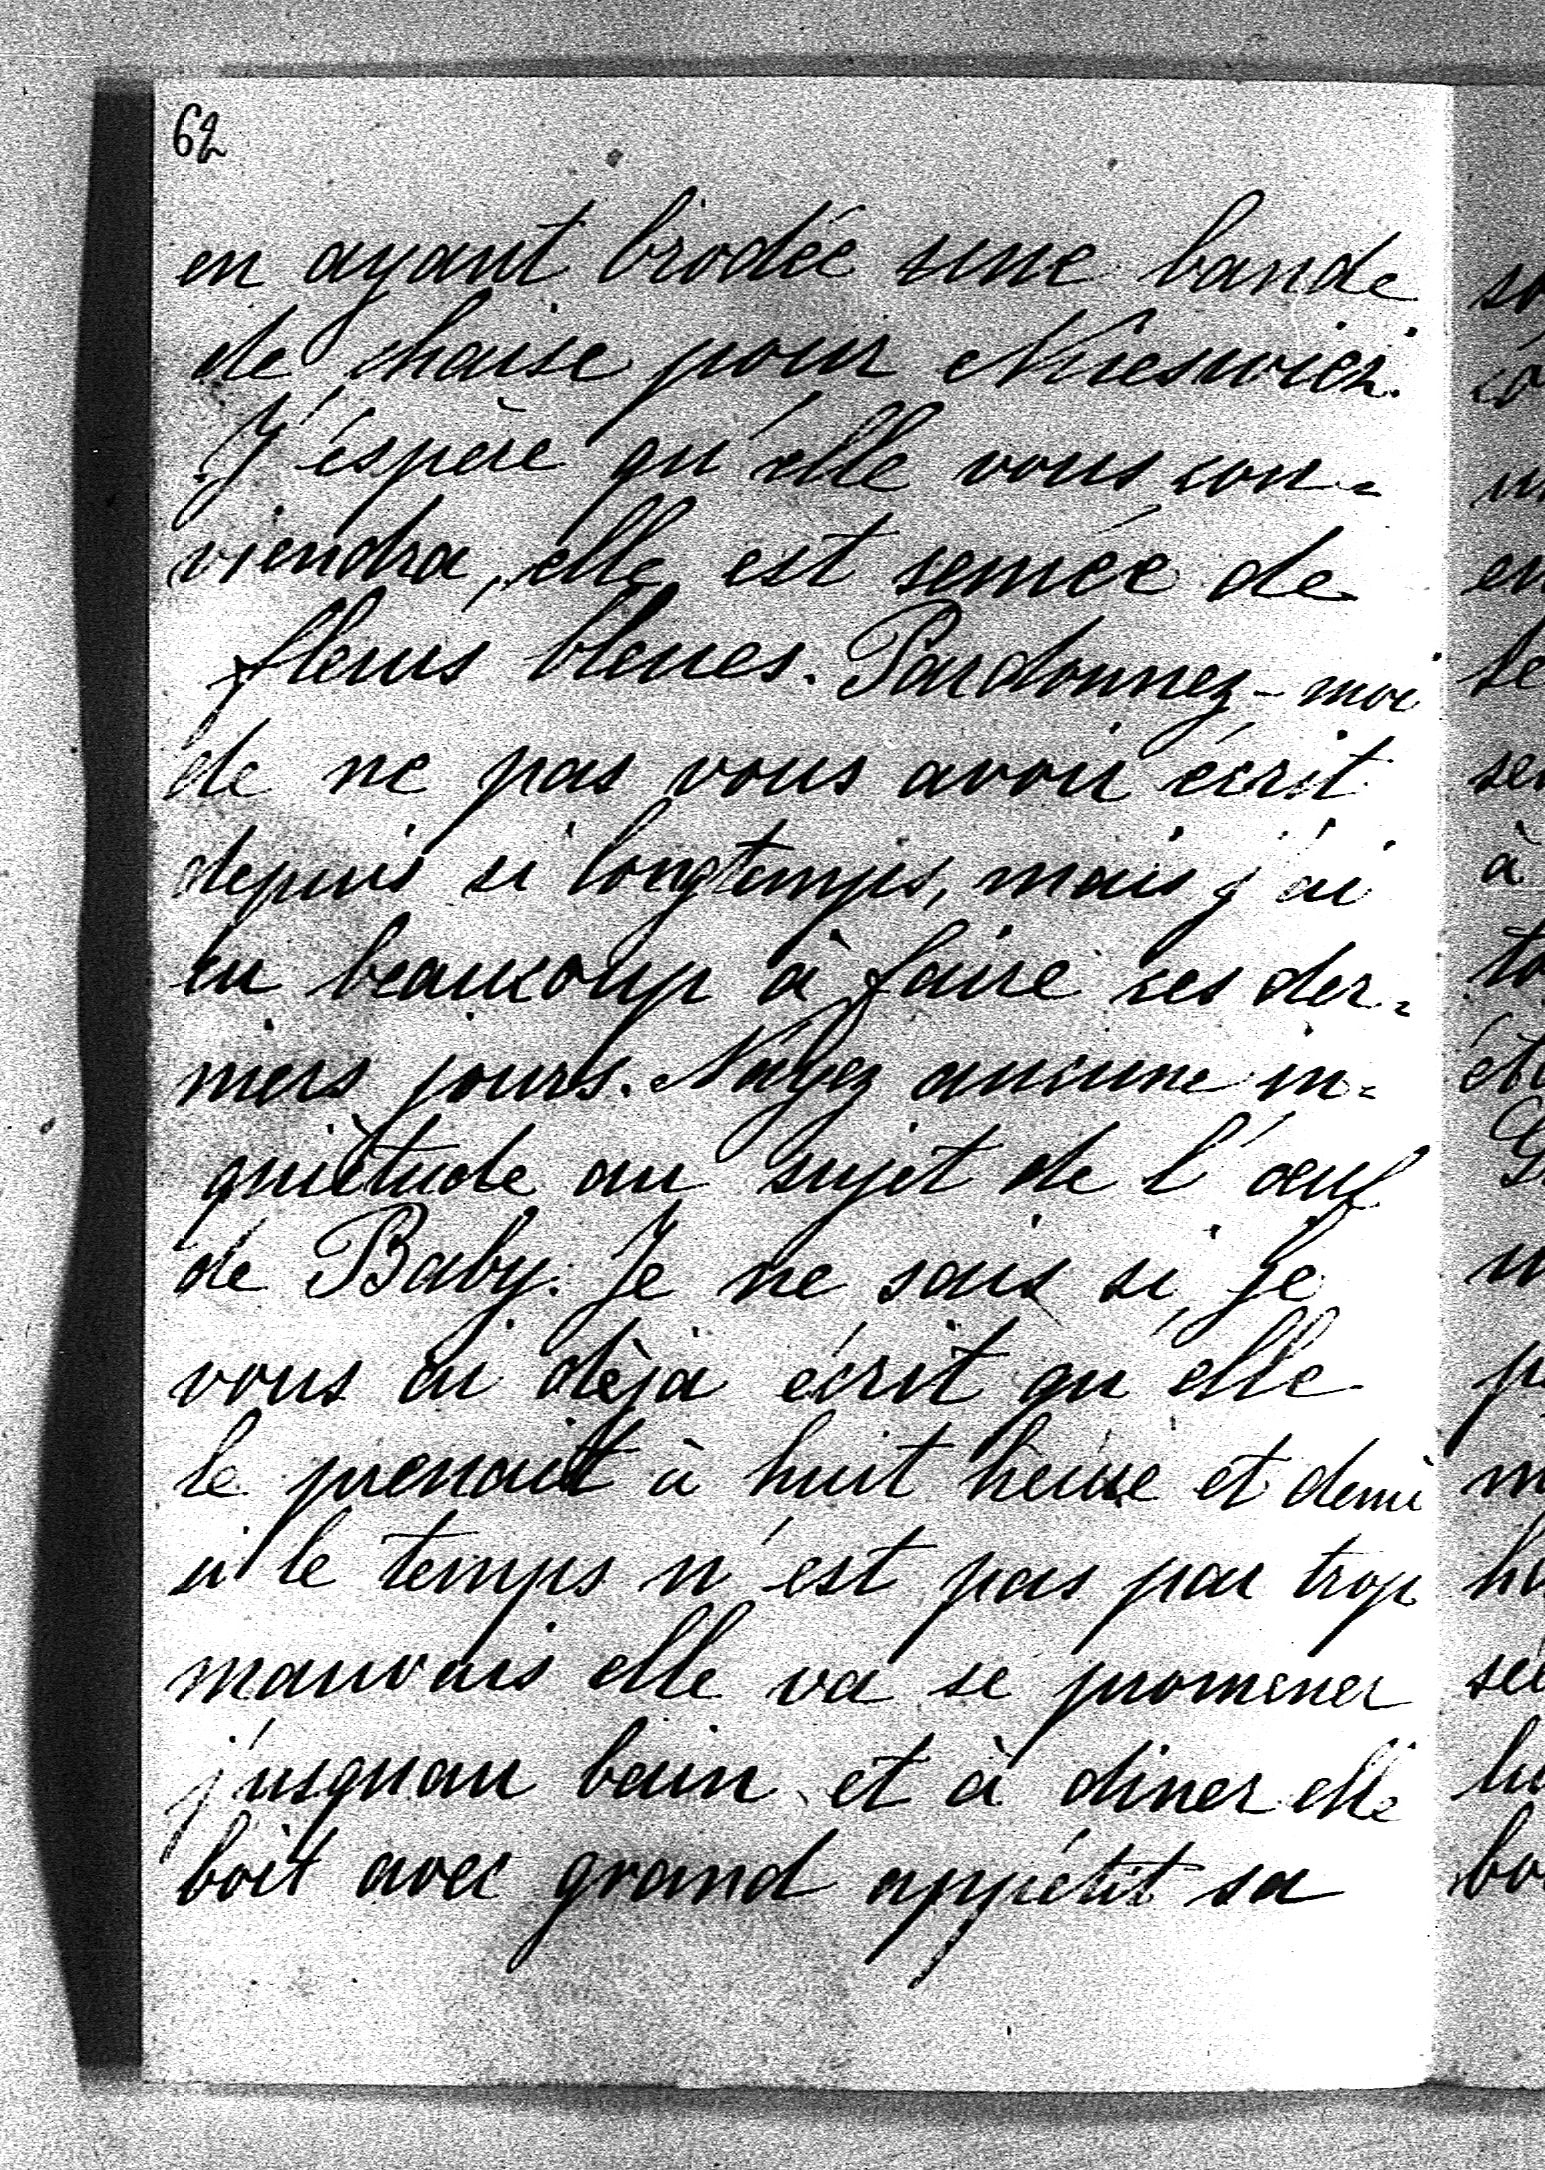 62
en ayant brodée une bande
de chaise pour Nieswiez.
J'éspère qu'elle vous con=
viendra, elle est semée de
fleurs bleues. Pardonnez-moi
de ne pas vous avoir écrit
depuis si longtemps, mais j'ai
eu beaucoup à faire ces der=
niers jours. N'ayez aucune in=
quiètude au sujet de l'œuf
de Baby. Je ne sais si je
vous ai dèjà écrit qu'elle
le prenait à huit heure et demi
si le temps n'est pas par trop
mauvais elle va se promener
j'usquau bain et à diner elle
boit avec grand appétit sa